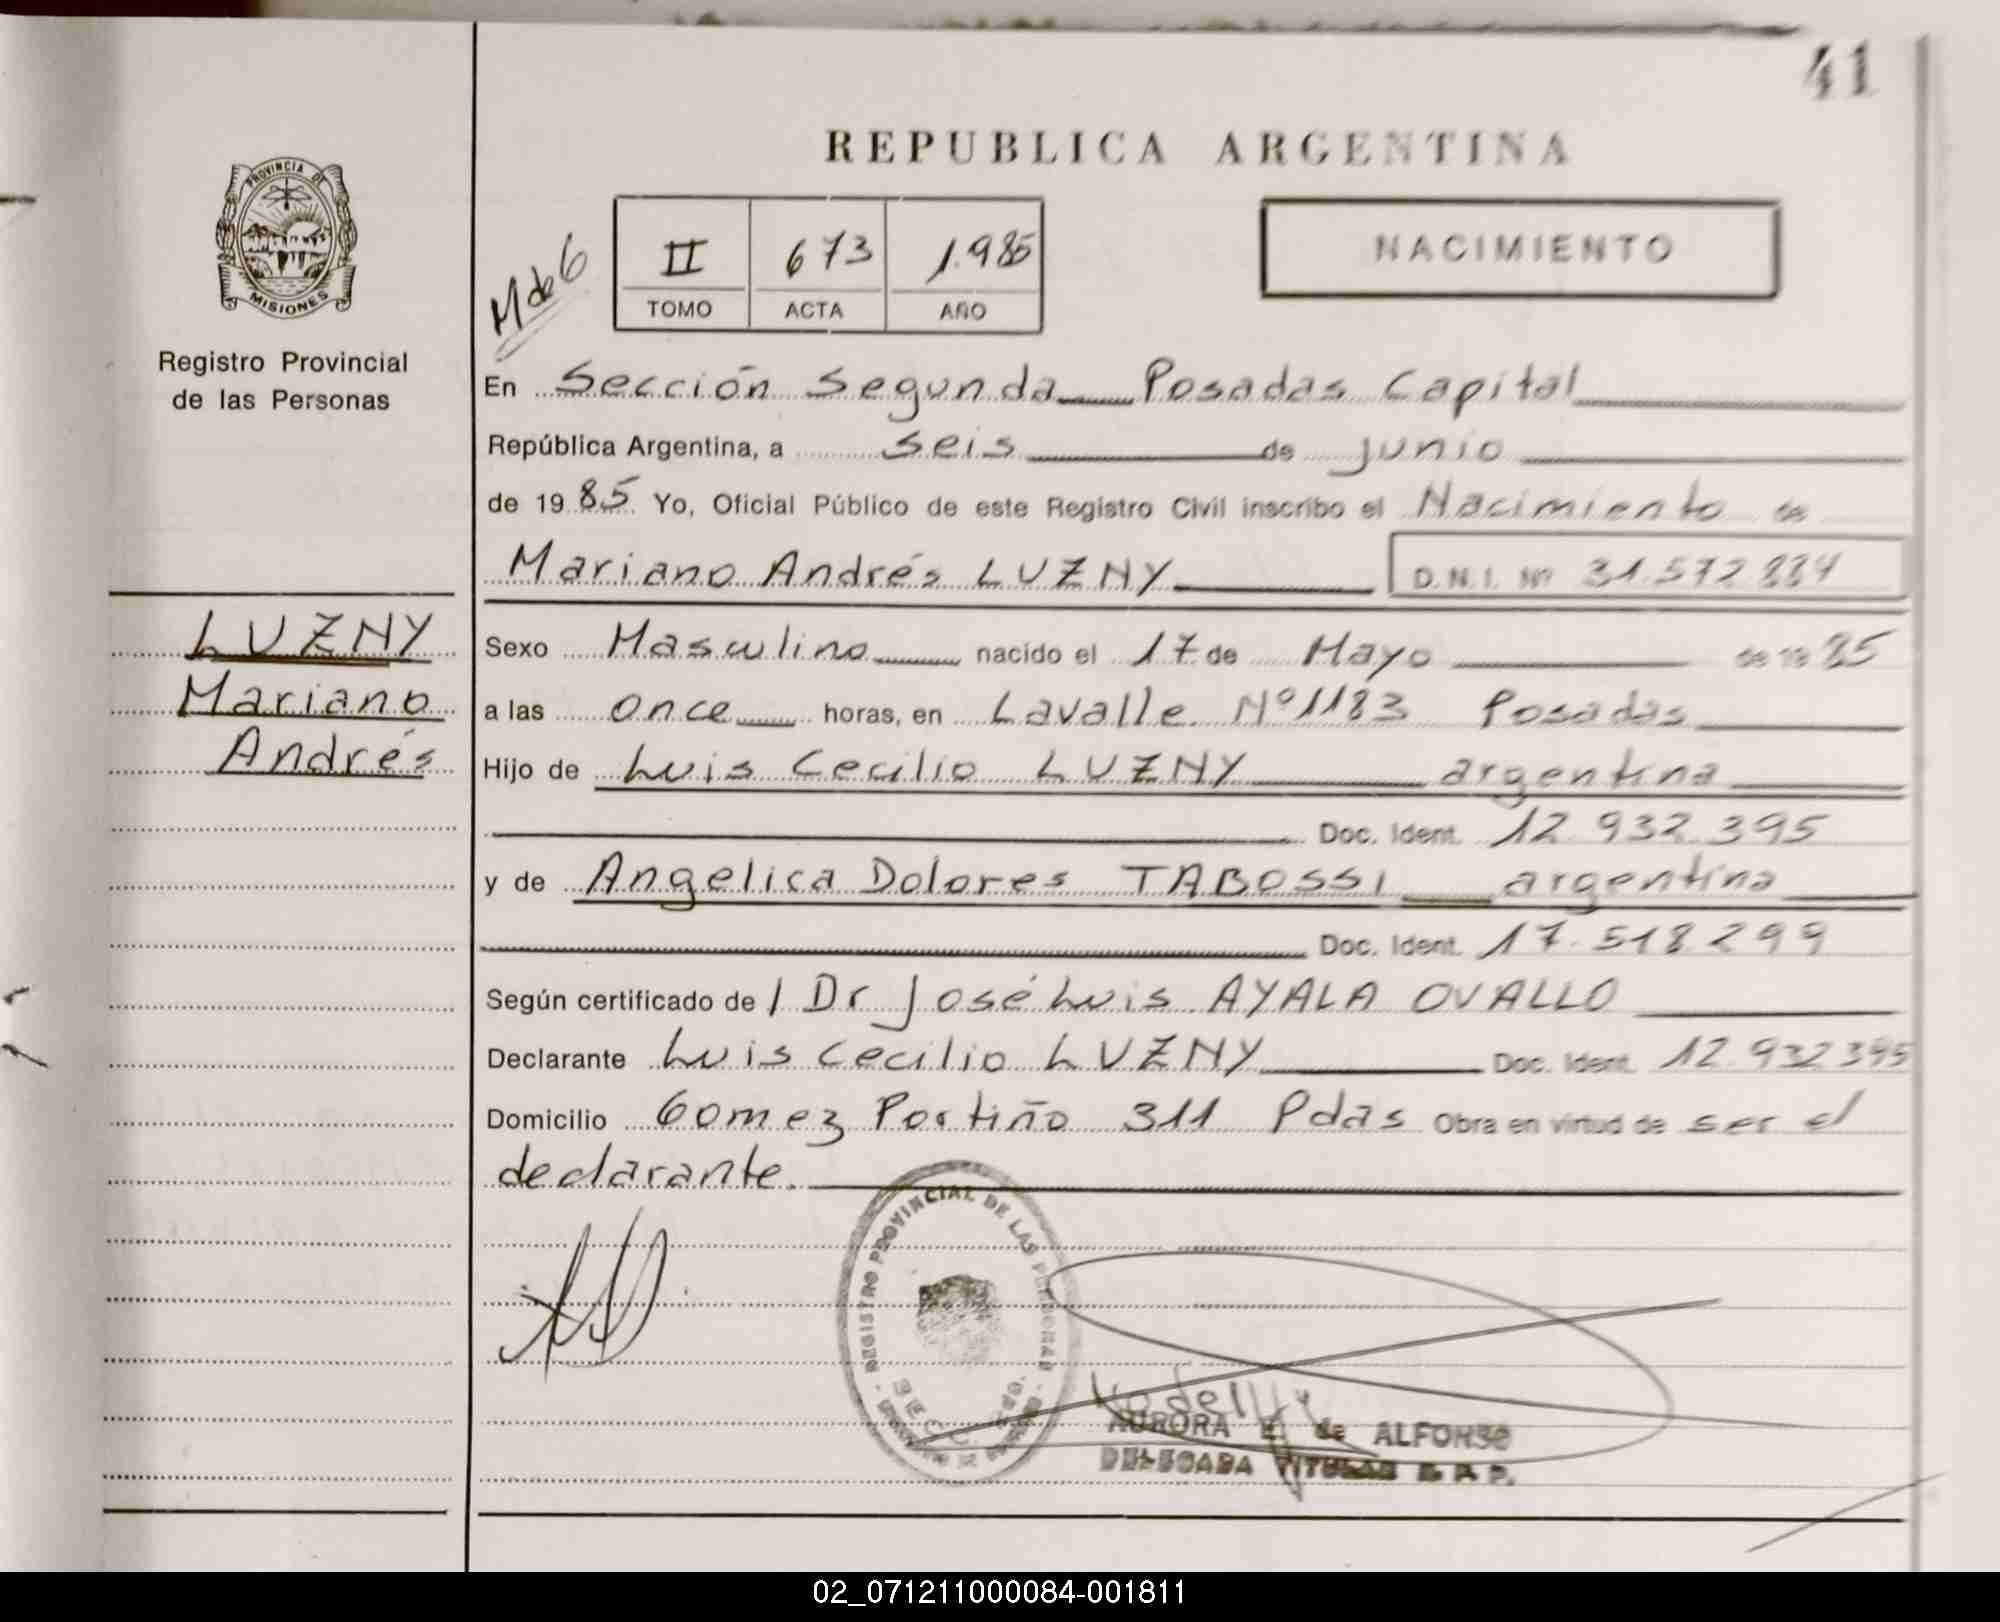 41
REPUBLICA ARGENTINA
PROVINCIA DE
MISIONES
Registro Provincial
de las Personas
M de 6
II 673 1.985
TOMO ACTA AÑO
NACIMIENTO
En Sección Segunda Posadas Capital
República Argentina, a seis de junio
de 19 85 Yo, Oficial Público de este Registro Civil inscribo el Nacimiento de
Mariano Andrés LUZNY D.N.I. Nº 31.572.884
LUZNY
Mariano
Andrés
Sexo Masculino nacido el 17 de Mayo de 19 85
a las once horas, en Lavalle Nº 1183 Posadas
Hijo de Luis Cecilio LUZNY argentina
Doc. Ident. 12.932.395
y de Angelica Dolores TABOSSI argentina
Doc. Ident. 17.518.299
Según certificado de l Dr José Luis AYALA OVALLO
Declarante Luis Cecilio LUZNY Doc. Ident. 12.932395
Domicilio Gomez Portiño 311 Pdas Obra en virtud de ser el
declarante.
REGISTRO PROVINCIAL DE LAS PERSONAS
AURORA de ALFONSO
DELEGADA TITULAR R.P.P.
02_071211000084-001811